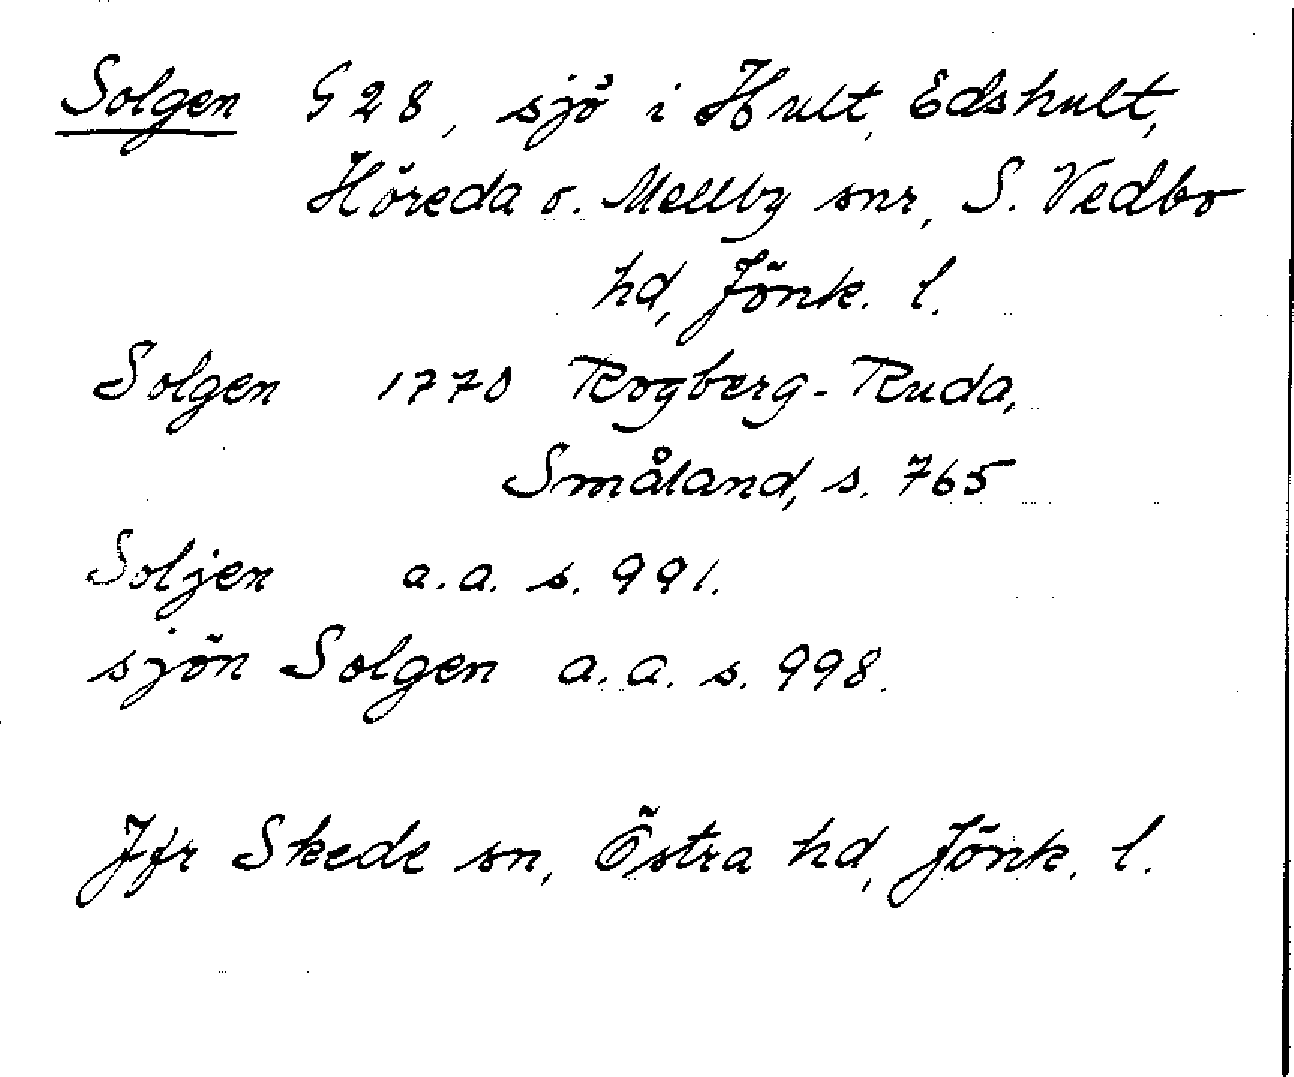 Solgen G 28, sjö i Hult, Edshult,
Höreda o. Mellby snr, S. Vedbo
hd, Jönk. l.
Solgen 1770 Rogberg-Ruda,
Småland, s. 765
Soljen a.a. s. 991.
sjön Solgen a.a. s. 998.
Jfr Skede sn, Östra hd, Jönk. l.